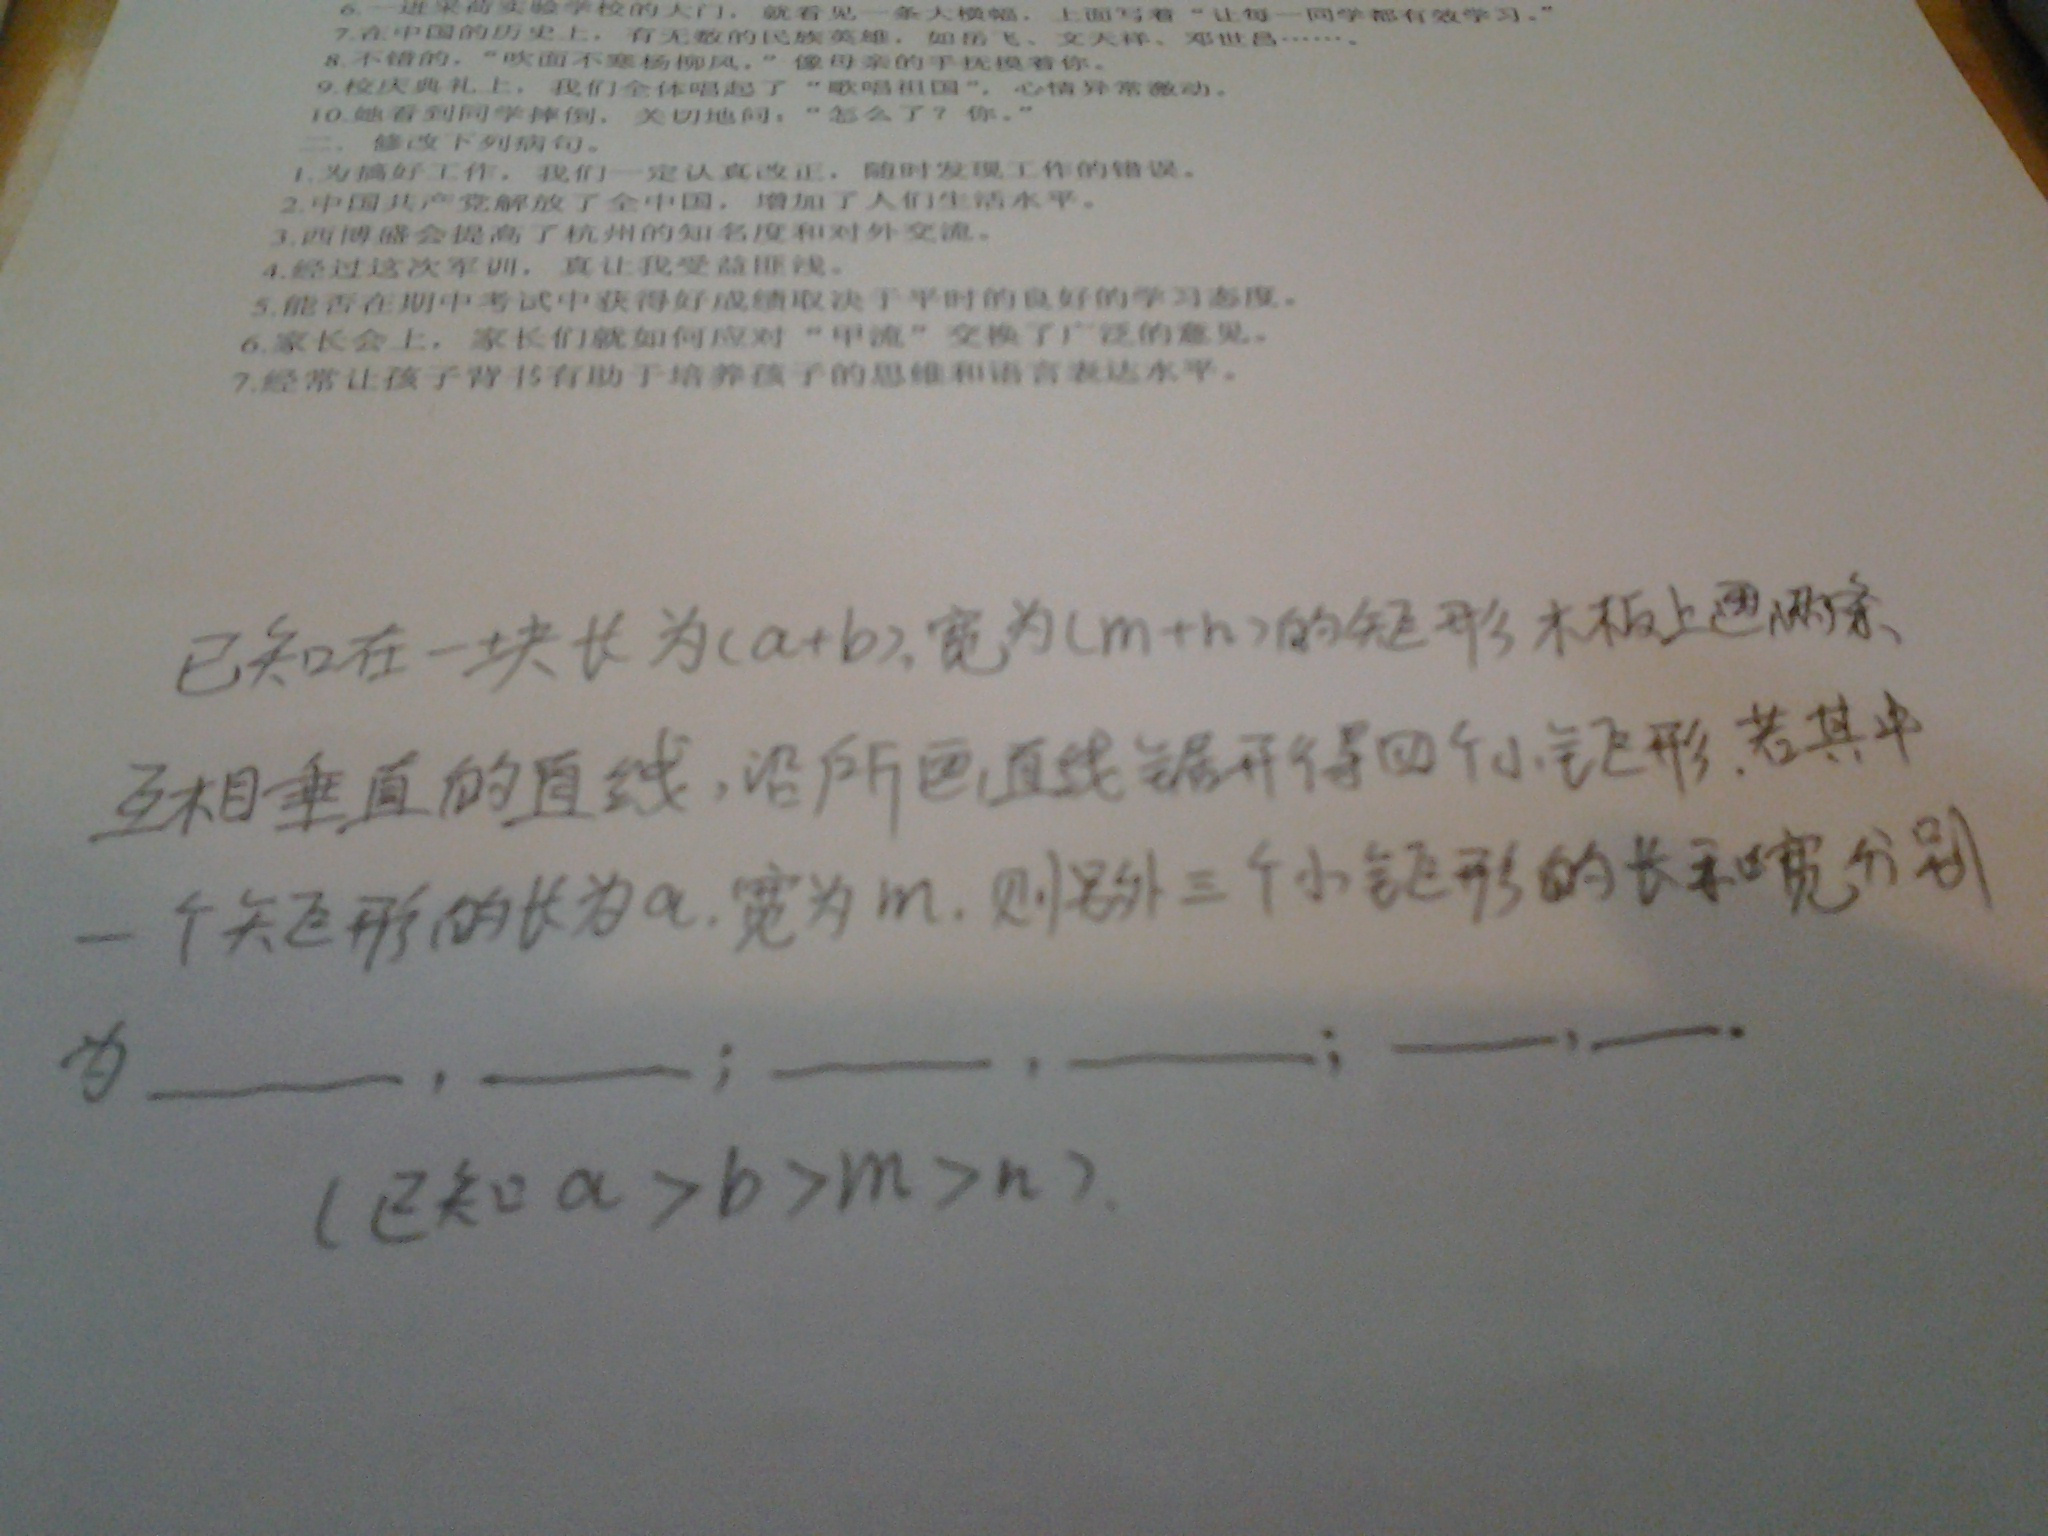 6.一进来荷实验学校的大门，就看见一条大横幅，上面写着“让每一同学都有效学习。”
7.在中国的历史上，有无数的民族英雄，如岳飞、文天祥、邓世昌……。
8.不错的，“吹面不寒杨柳风，”像母亲的手抚摸着你。
9.校庆典礼上，我们全体唱起了“歌唱祖国”，心情异常激动。
10.她看到同学摔倒，关切地问：“怎么了？你。”
二、修改下列病句。
1.为搞好工作，我们一定认真改正，随时发现工作的错误。
2.中国共产党解放了全中国，增加了人们生活水平。
3.西博盛会提高了杭州的知名度和对外交流。
4.经过这次军训，真让我受益匪浅。
5.能否在期中考试中获得好成绩取决于平时的良好的学习态度。
6.家长会上，家长们就如何应对“甲流”交换了广泛的意见。
7.经常让孩子背书有助于培养孩子的思维和语言表达水平。
已知在一块长为(a+b)，宽为(m+n)的矩形木板上画两条
互相垂直的直线，沿所画直线锯开得四个小矩形.若其中
一个矩形的长为a.宽为m.则另外三个小矩形的长和宽分别
为______，______；______，______；______，______.
(已知a>b>m>n).